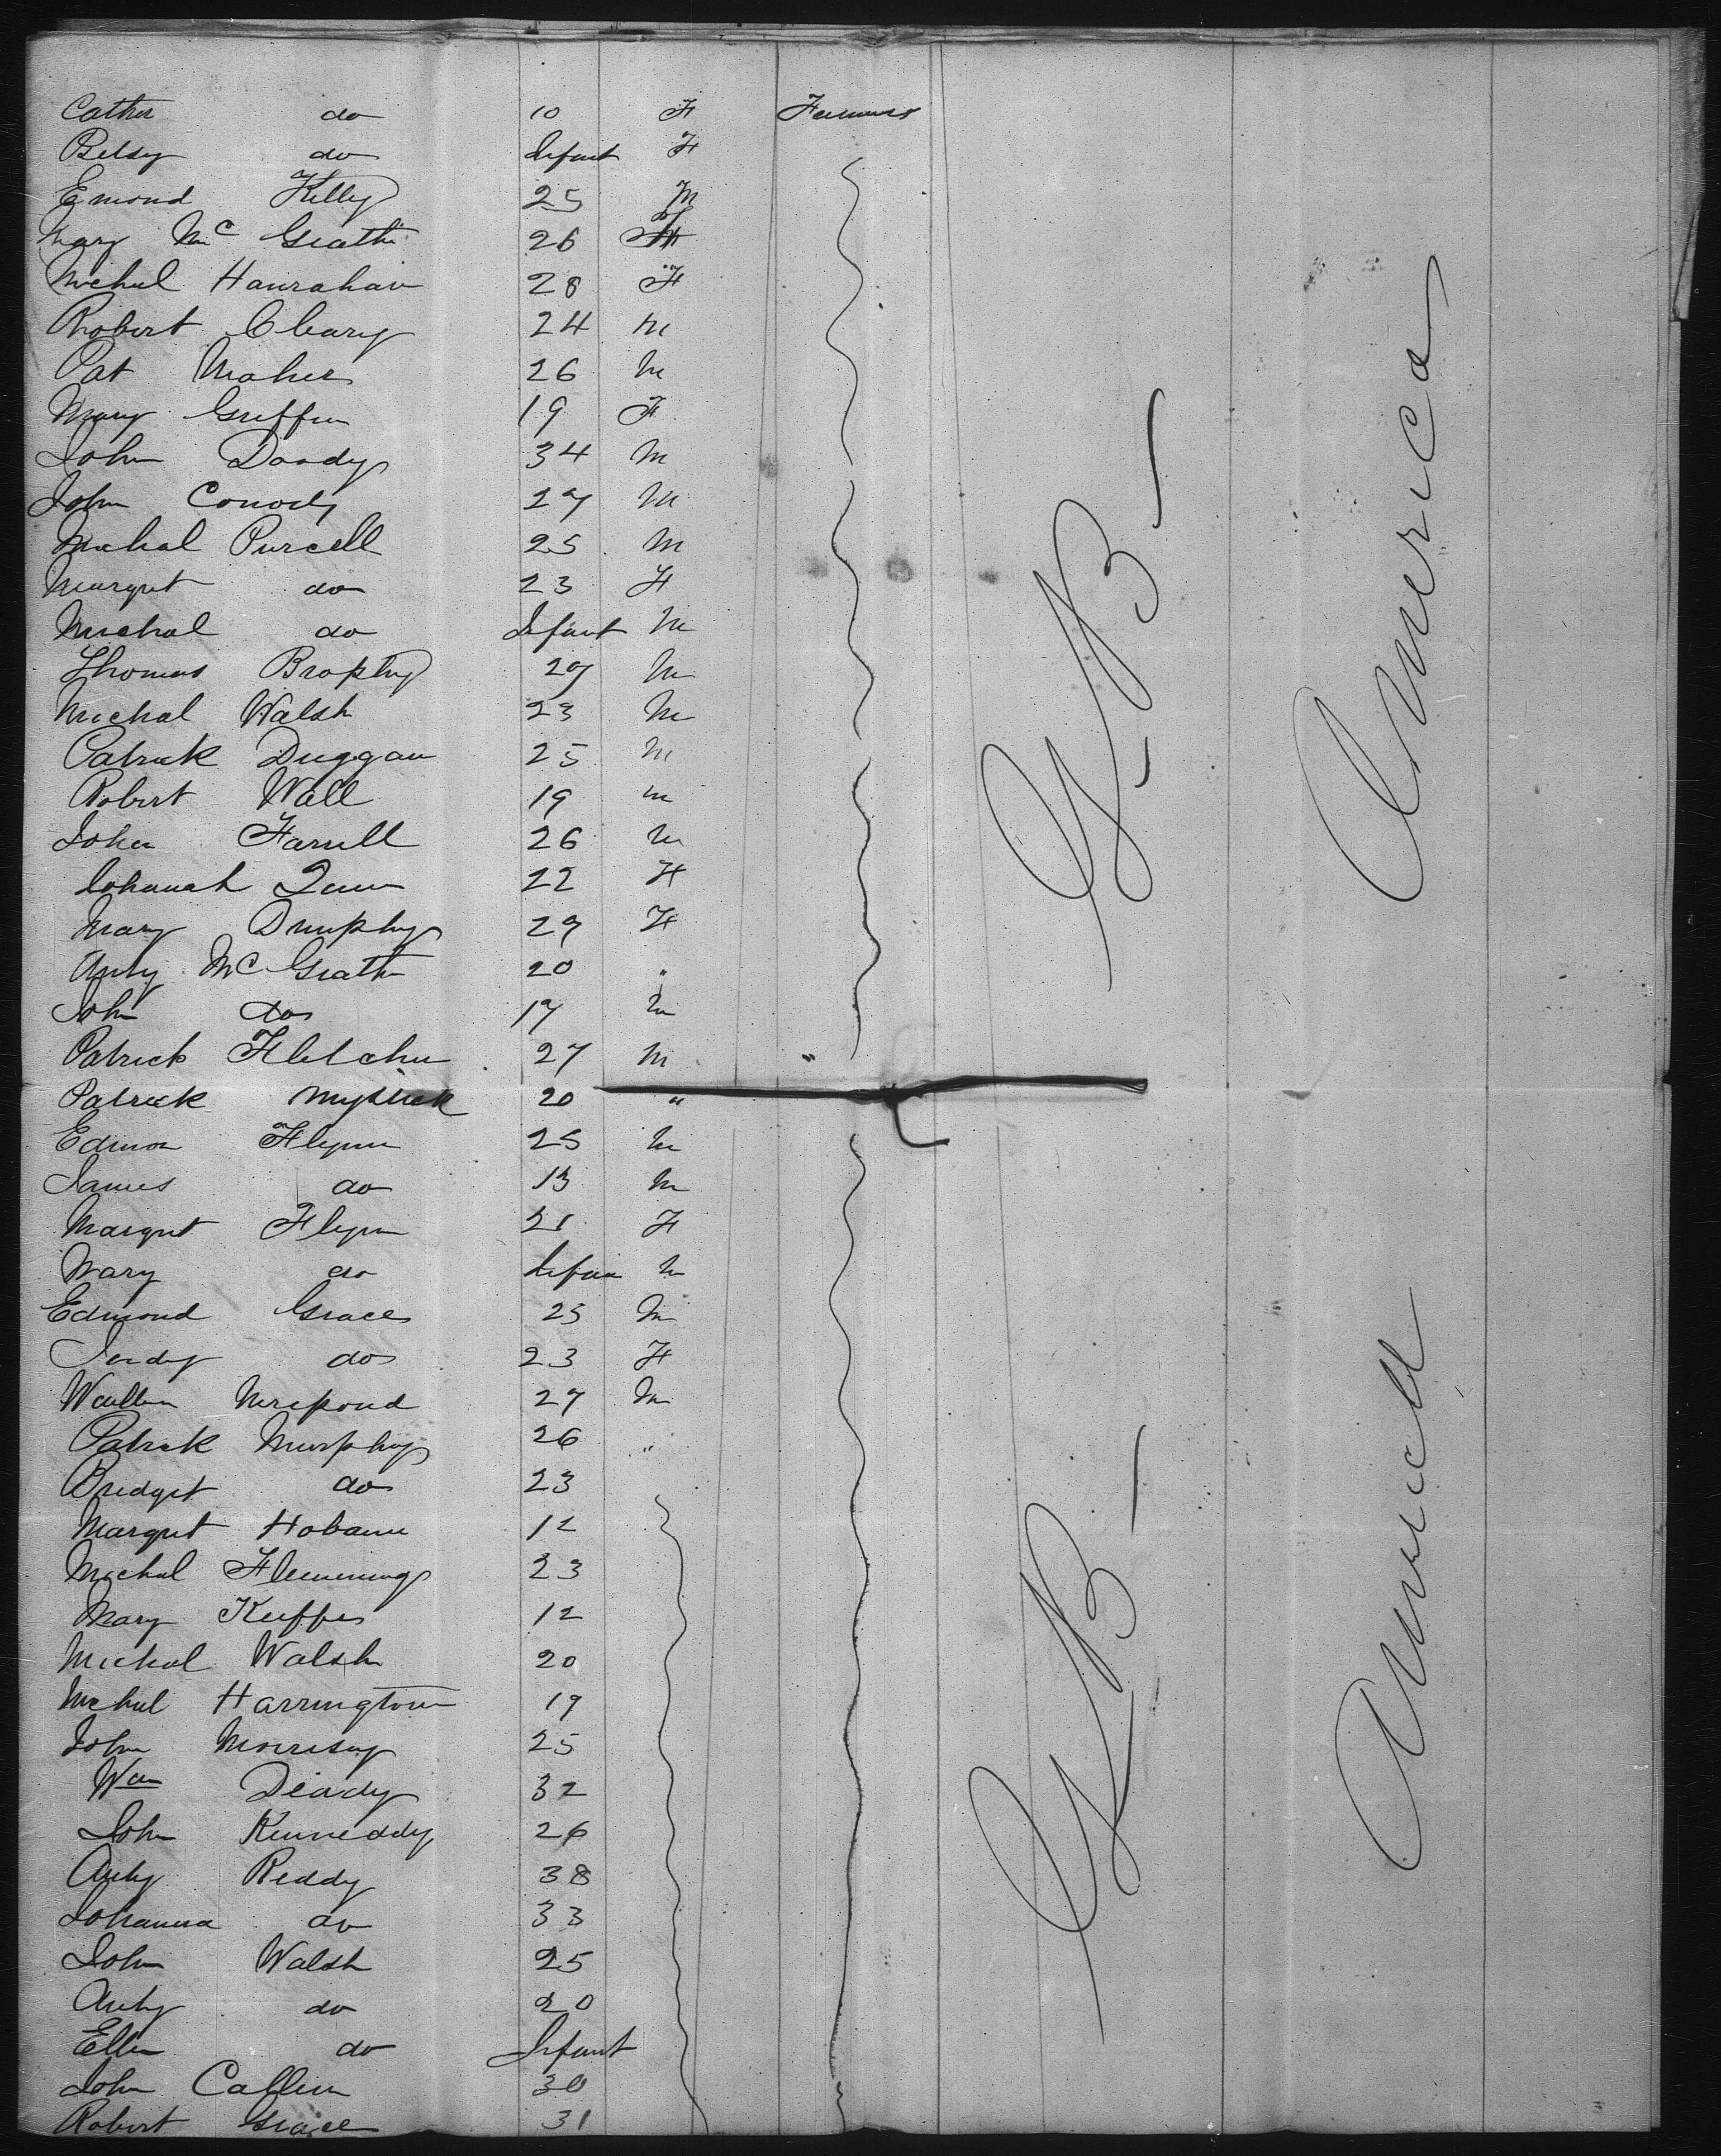 Cather do 10 F Farmers
Betsy do Infant F
Emond Kelly 25 M
Mary Mc Grath 26 F
Michal Hanrahan 28 F
Robert Cleary 24 M
Pat Maher 26 M
Mary Griffin 19 F
John Doody 34 M
John Conody 27 M
Michal Purcell 25 M
Margret do 23 F
Michal do Infant M
Thomas Brophy 27 M
Michal Walsh 23 M
Patrick Duggan 25 M
Robert Wall 19 M
John Farrell 26 M
Johanah Quin 22 F
Mary Dunphy 29 F
Anty McGrath 20 "
John do 17 M
Patrick Fletcher 27 M "
Patrick 20 "
Edmon Flynn 25 M
James do 13 M
Margret Flynn 21 F
Mary do Infan M
Edmond Grace 25 M
Judy do 23 F
27 M
Patrick Murphy 26 "
Bridget do 23
Margret 12
Michal Flemming 23
Mary Keeffe 12
Michal Walsh 20
Michal Harrington 19
John Morrisey 25
Wm Deady 32
John Kenneddy 26
Anty Reddy 38
Johanna do 33
John Walsh 25
Anty do 20
Ellen do Infant
John Callen 30
Robert Grace 31
G.B-
America
G.B-
America